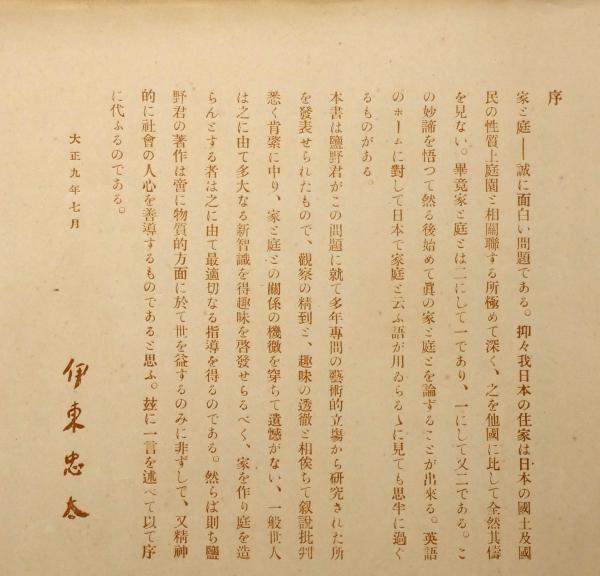 序
家と庭――誠に面白い問題である。抑々我日本の住家は日本の國土及國
民の性質上庭園と相關聯する所極めて深く、之を他國に比して全然其儔
を見ない。畢竟家と庭とは二にして一であり、一にして又二である。こ
の妙諦を悟つて然る後始めて眞の家と庭とを論ずることが出來る。英語
のホームに對して日本で家庭と云ふ語が用ゐらるゝに見ても思半に過ぐ
るものがある。
本書は鹽野君がこの問題に就て多年專問の藝術的立場から硏究された所
を發表せられたもので、觀察の精到と、趣味の透徹と相俟ちて叙說批判
悉く肯綮に中り、家と庭との關係の機微を穿ちて遺憾がない、一般世人
は之に由て多大なる新智識を得趣味を啓發せらるべく、家を作り庭を造
らんとする者は之に由て最適切なる指導を得るのである。然らば則ち鹽
野君の著作は啻に物質的方面に於て世を益するのみに非ずして、又精神
的に社會の人心を善導するものであると思ふ。玆に一言を述べて以て序
に代ふるのである。
大正九年七月
伊東忠太